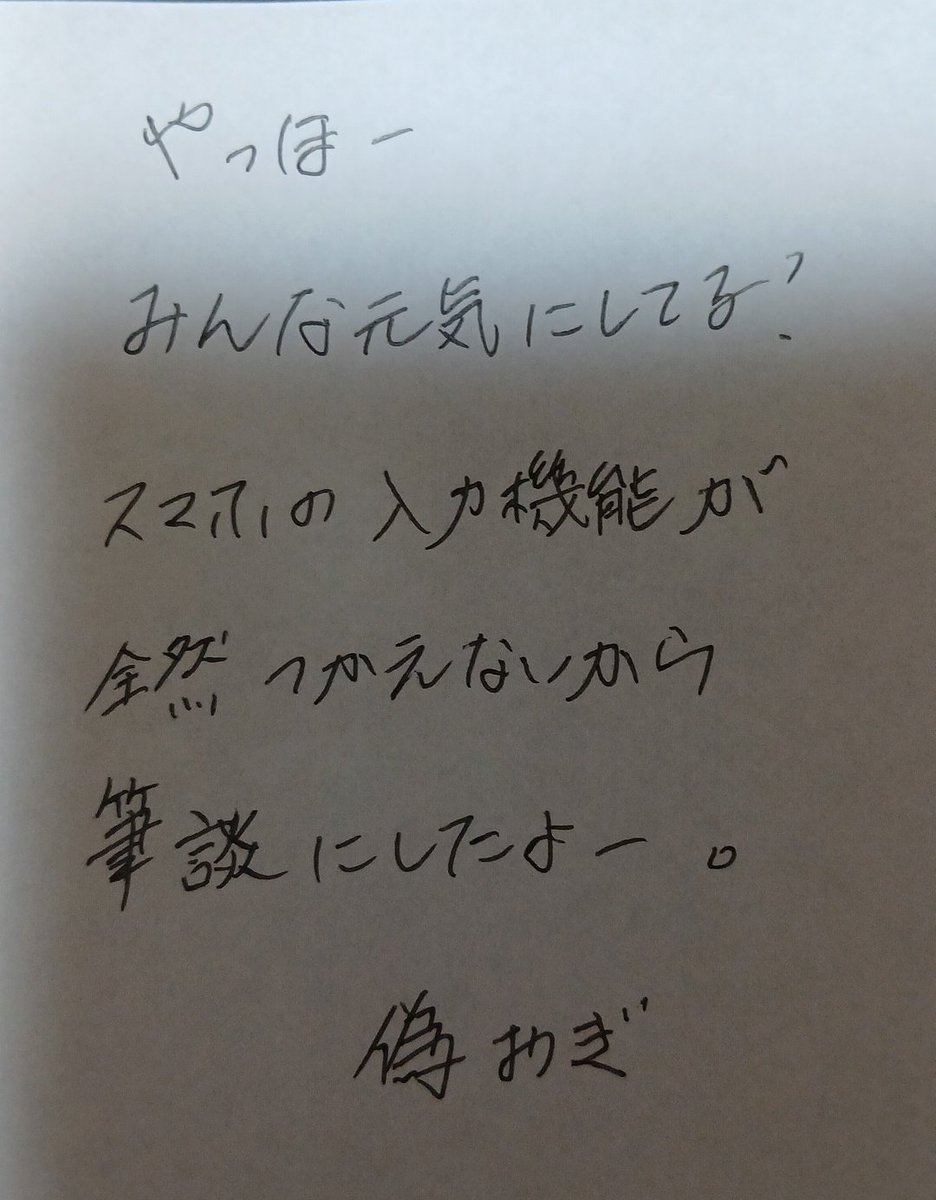 やっほー
みんな元気にしてる?
スマホの入力機能が
全然つかえないから
筆談にしたよー。
偽おぎ